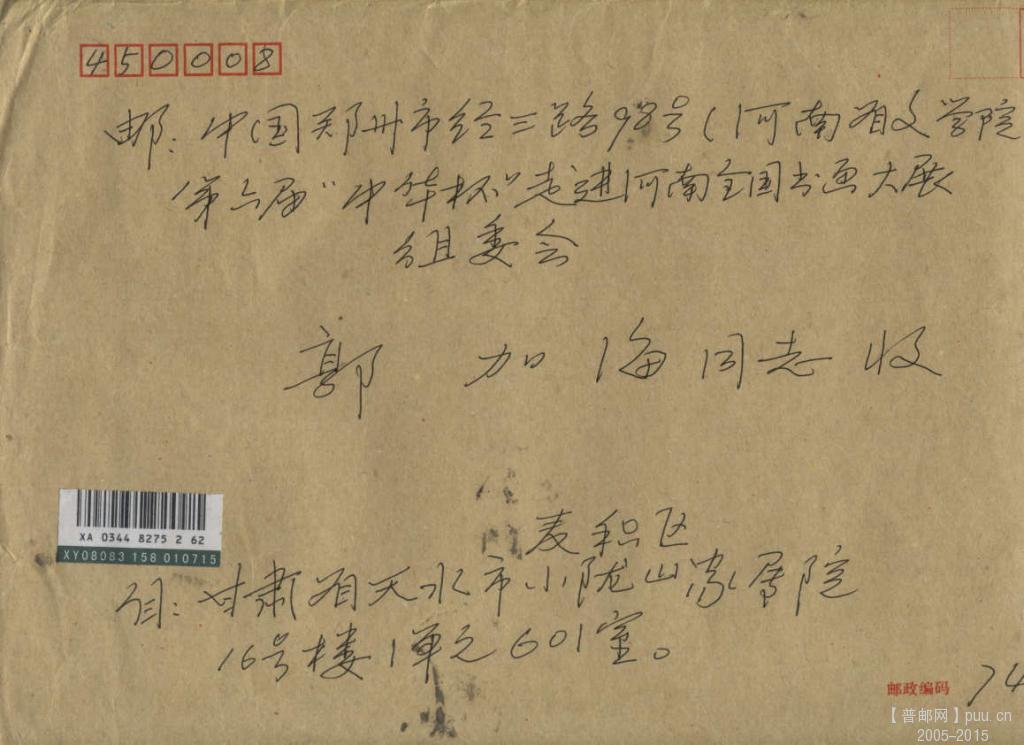 450008
邮:中国郑州市经三路98号(河南省文学院
第六届“中华杯”走进河南全国书画大展
组委会
郭 加 海 同志 收
XA 0344 8275 2 62
XY08083 158 010715
麦积区
自:甘肃省天水市小陇山家属院
16号楼1单元601室。
邮政编码 74
【普邮网】puu.cn
2005-2015